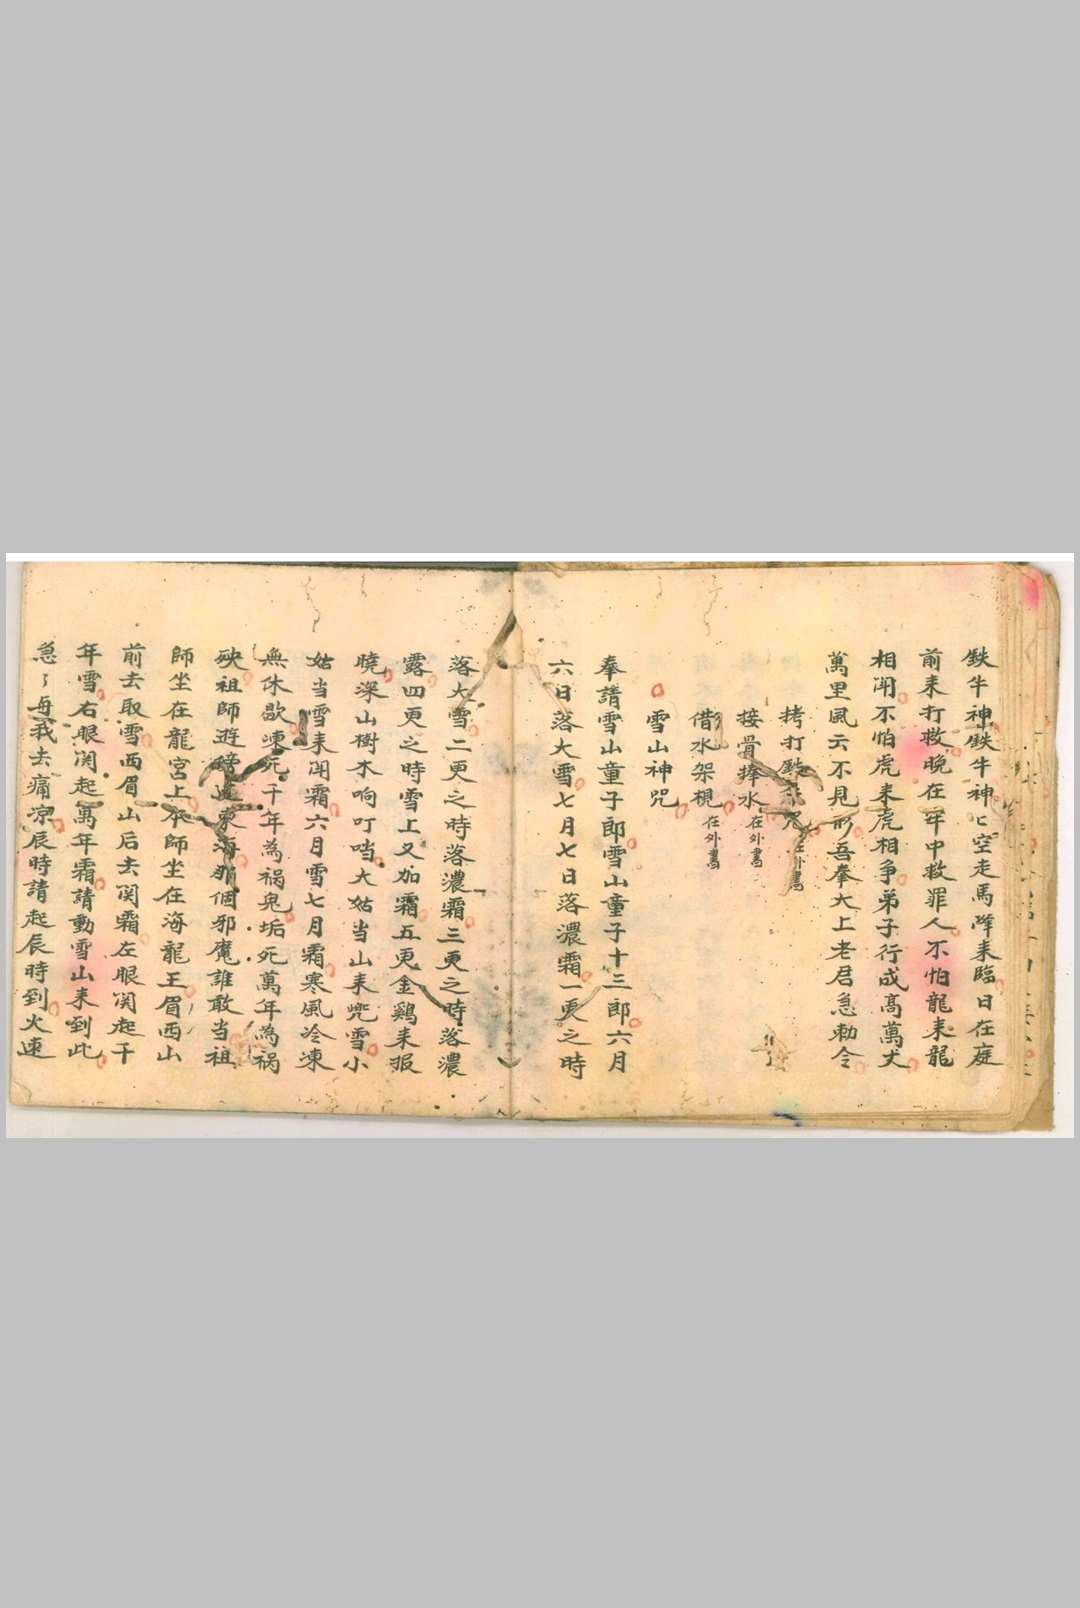 鉄牛神鉄牛神神匕空走馬降来臨日在庭
前来打救晚在牢中救罪人不怕龍来龍
相閗不怕虎来虎相争弟子行成高萬丈
萬里風云不見形吾奉大上老君急勅令
拷打 在外書
接骨捧水 在外書
借水架梘 在外書
雪山神咒
奉請雪山童子郎雪山童子十三郎六月
六日落大雪七月七日落濃霜一更之時
落大雪二更之時落濃霜三更之時落濃
露四更之時雪上又加霜五更金鷄来报
曉深山樹木响叮噹大姑当山来兠雪小
姑当雪来閗霜六月雪七月霜寒風冷凍
無休歇凍死千年為禍鬼垢死萬年為祸
殃祖師遊 東海那個邪魔誰敢当祖
師坐在龍宮上本師坐在海龍王眉西山
前去取雪西眉山后去関霜左眼関起千
年雪右眼関起萬年霜請動雪山来到此
急々与我去痛凉辰時請起辰時到火速